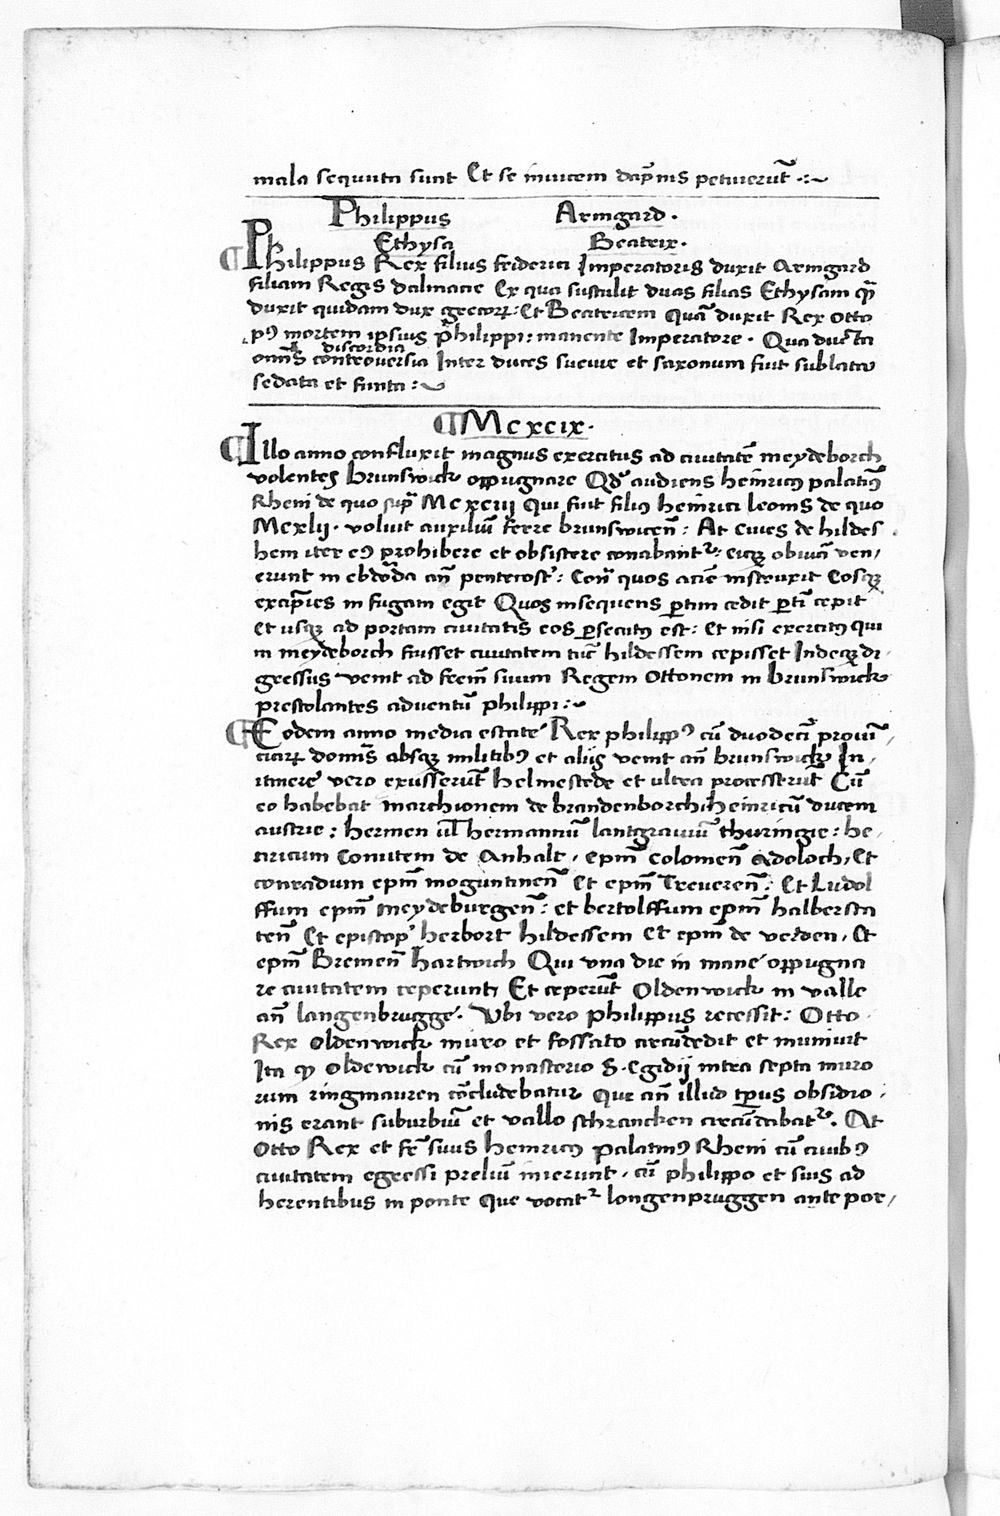 mala sequuta sunt Et se inuicem dāpnis petiuerūt
Philippus Armgard.
Ethysa Beatrix.
¶ Philippus Rex filius friderici Imperatoris duxit Armgard
filiam Regis dalmacie Ex qua sustulit duas filias Ethysam
duxit quidam dux grecoꝝ: Et Beatricem Quā duxit Rex Otto
pꝰ mortem ipsius philippi: manente Imperatore. Qua ducta
discordia
controuersia Inter duces sueuie et saxonum fuit sublata
sedata et finita:
¶ Mcxcix.
¶ Illo anno confluxit magnus exercitus ad ciuitatē meydeborch
volentes brunswick oppugnare Qđ audiens heinricꝰ palatinꝰ
Rheni de quo supͣ Mcxciij Qui fuit filiꝰ heinrici leonis de quo
Mcxlij. voluit auxiliū ferre brunswiceñ: At Ciues de hildes
hem iter eiꝰ prohibere et obsistere conabantᷣ: eiqꝫ obuiā ven/
erunt in ebdōda añ pentecost: Conͣ quos aciē instruxit Eosqꝫ
in fugam egit Quos insequens ꝑtim cedit ꝑtī cepit
Et usqꝫ ad portam ciuitatis eos ꝑsecutꝰ est: Et nisi exercitꝰ qui
in meydeborch fuisset ciuitatem tūc hildessem cepisset Indeqꝫ di
gressus venit ad frēm suum Regem Ottonem in brunswick
prestolantes aduentū philippi:
¶ Eodem anno media estate Rex philippꝰ cū duodecī prouī/
ciaꝝ domīs absqꝫ militibꝰ et aliis venit añ brunswick In/
itinere vero exusserūt helmestede et ultra processerūt Cū
eo habebat marchionem de brandenborch: heinricū ducem
austrie: hermen ūl hermannū lantgrauiū thuringie: he/
nricum Comitem de Anhalt, epm̄ Colomeñ Adoloch, Et
conradum epm̄ moguntineñ Et epm̄ Treuereñ: Et Ludol
ffum epm̄ meydeburgeñ: et bertolffum epm̄ halbersta
teñ Et episcopꝰ herbort hildessem Et epm̄ de verden, Et
epm̄ Bremeñ hartwich Qui vna die in mane oppugna
re ciuitatem ceperunt, Et ceperūt Oldenwick in valle
añ langenbrugge. Vbi vero philippus recessit: Otto
Rex Oldenwick muro et fossato circūdedit et muniuit
Ita ꝙ Oldewick cū monasterio S. Egidij intra septa muro
rum ringmauren cōcludebatur Que añ illud tp̄us obsidio/
nis erant suburbiū et vallo schrancken circūdabatᷣ. At
Otto Rex et fr̄ suus heinricꝰ palatinꝰ Rheni cū ciuibꝰ
ciuitatem egressi preliū inierunt, cū philippo et suis ad
herentibus in ponte Que vocatᷣ longenpruggen ante por/